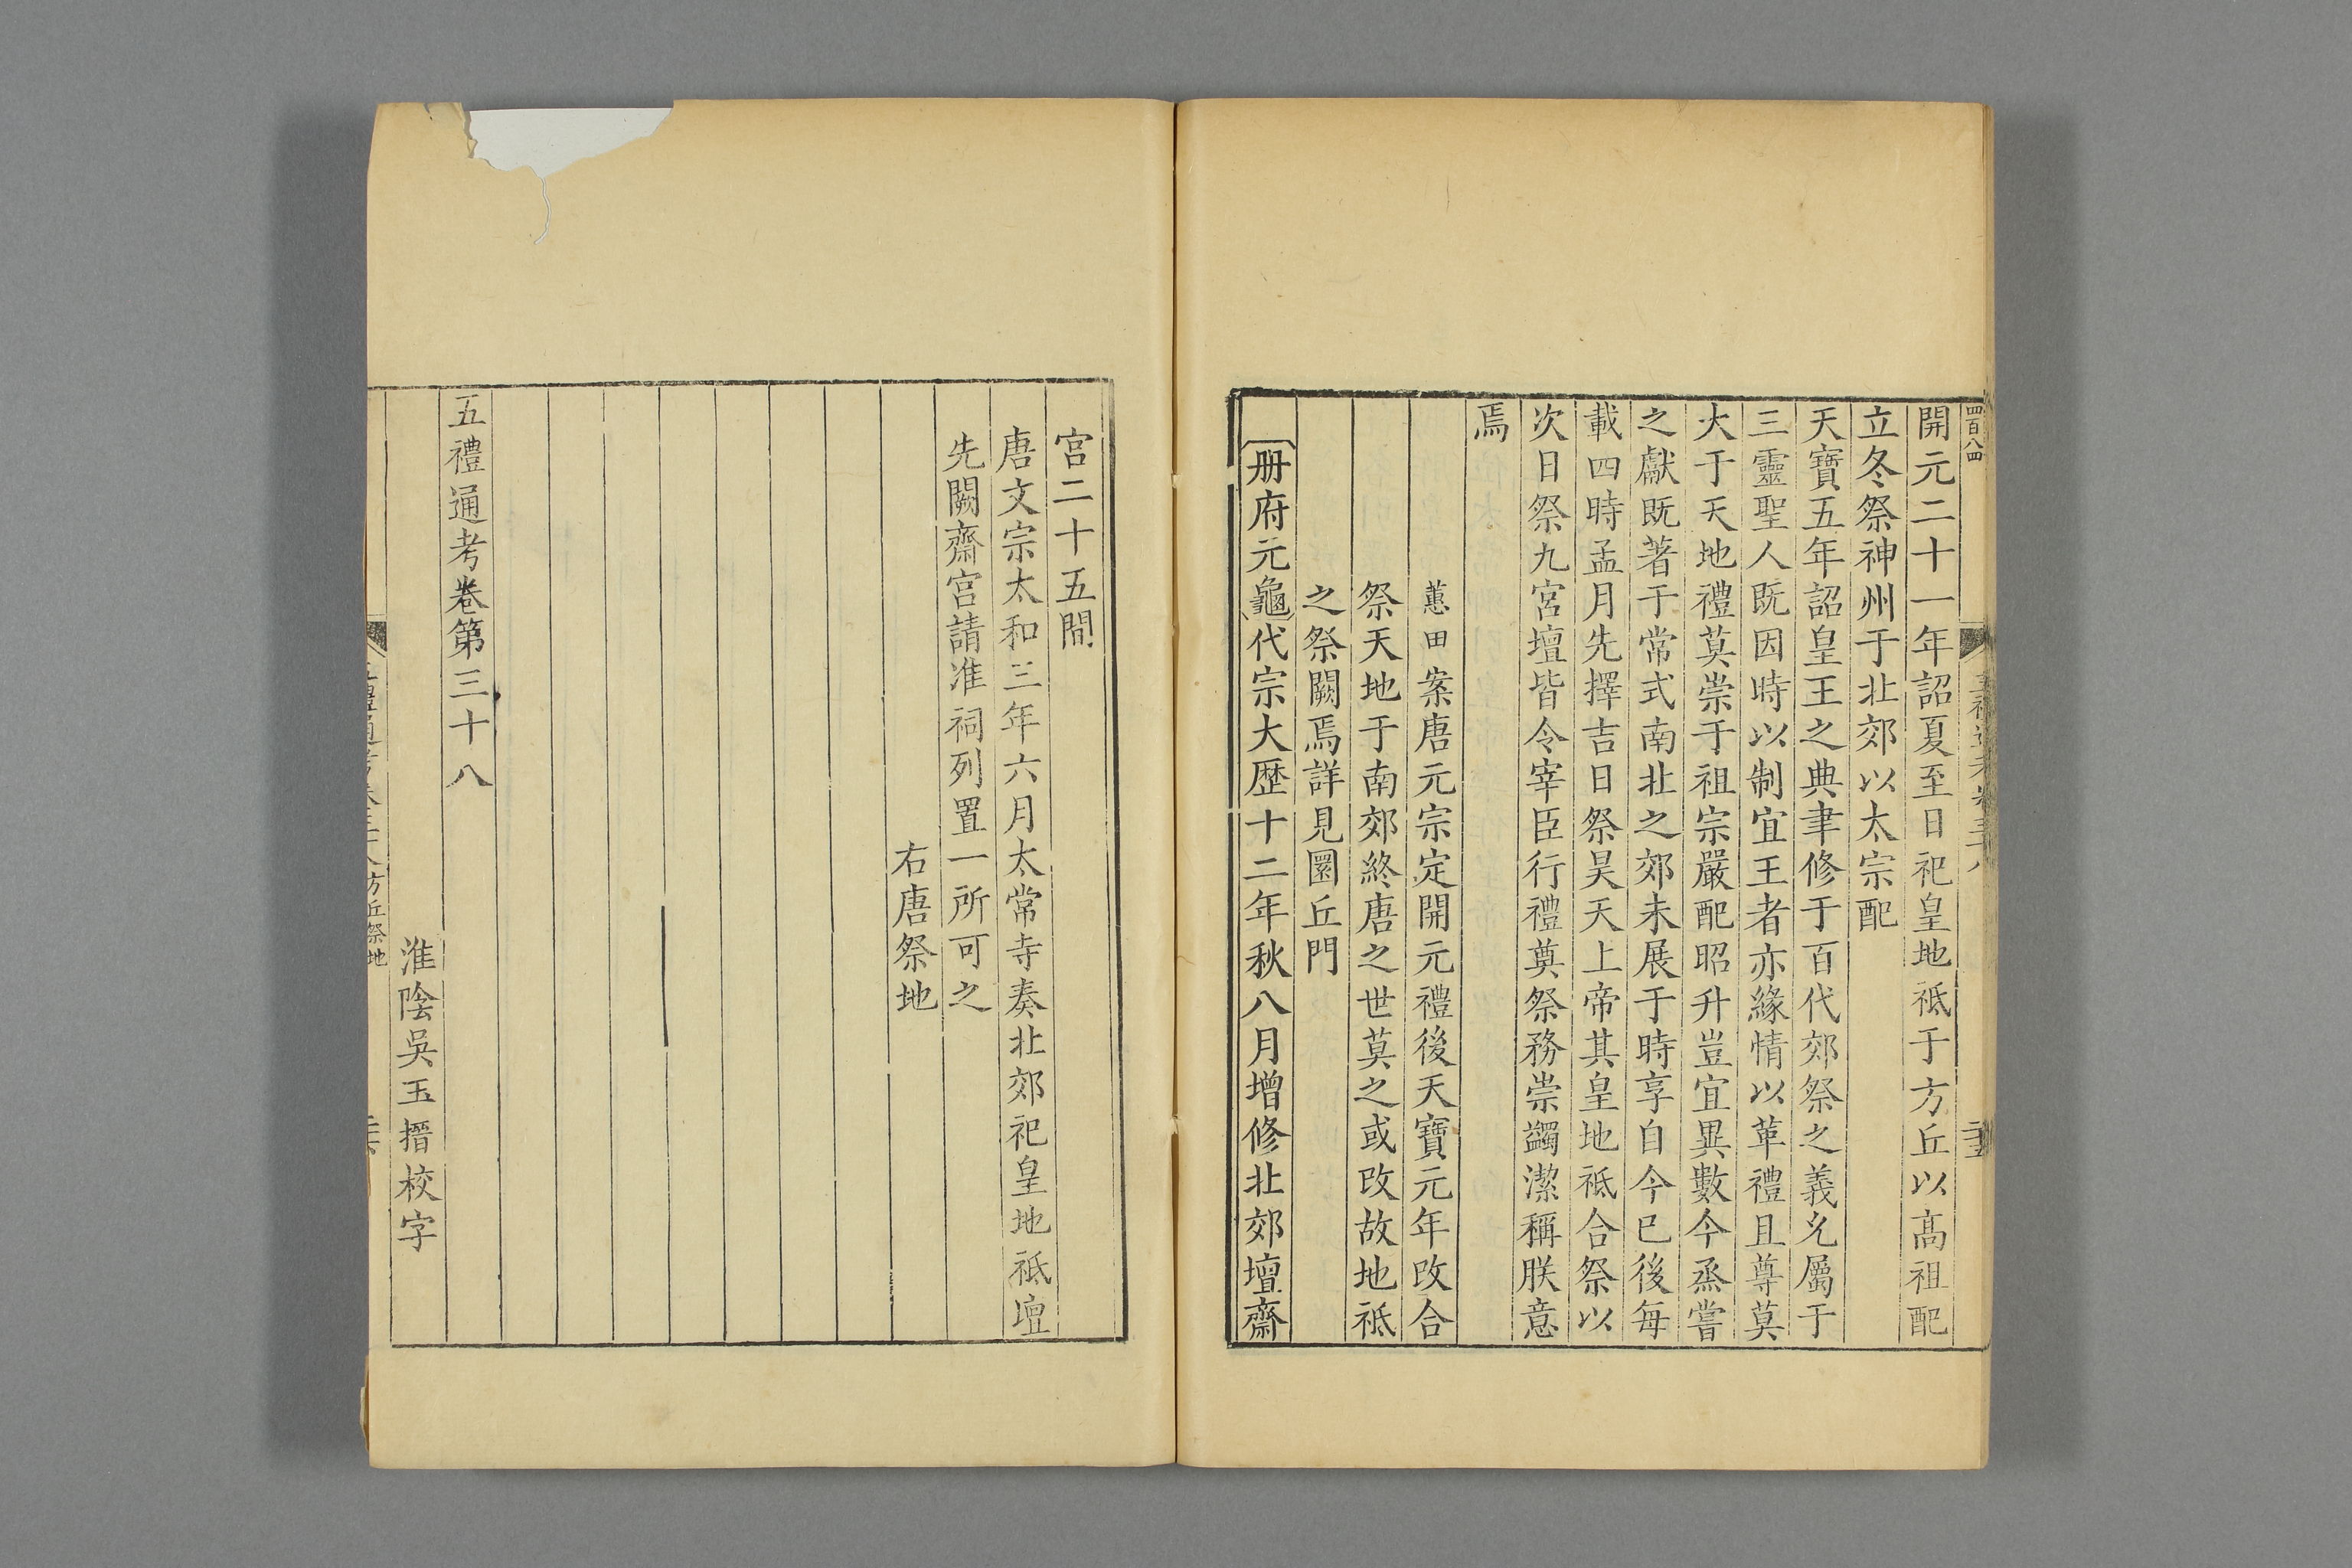 四百八四
開元二十一年詔夏至日祀皇地祗于方丘以高祖配
立冬祭神州于北郊以太宗配
天寶五年詔皇王之典聿修于百代郊祭之義允屬于
三靈聖人既因時以制宜王者亦緣情以革禮且尊莫
大于天地禮莫崇于祖宗嚴配昭升豈宜異數今烝嘗
之獻既著于常式南北之郊未展于時享自今已後每
載四時孟月先擇吉日祭昊天上帝其皇地祗合祭以
次日祭九宮壇皆令宰臣行禮奠祭務崇蠲潔稱朕意
焉
蕙田案唐元宗定開元禮後天寶元年改合
祭天地于南郊終唐之世莫之或改故地祗
之祭闕焉詳見圜丘門
册府元龜代宗大歷十二年秋八月增修北郊壇齋
宮二十五間
唐文宗太和三年六月太常寺奏北郊祀皇地祗壇
先闕齋宮請准祠列置一所可之
右唐祭地
五禮通考卷第三十八
淮陰吳玉搢校字
方丘祭地